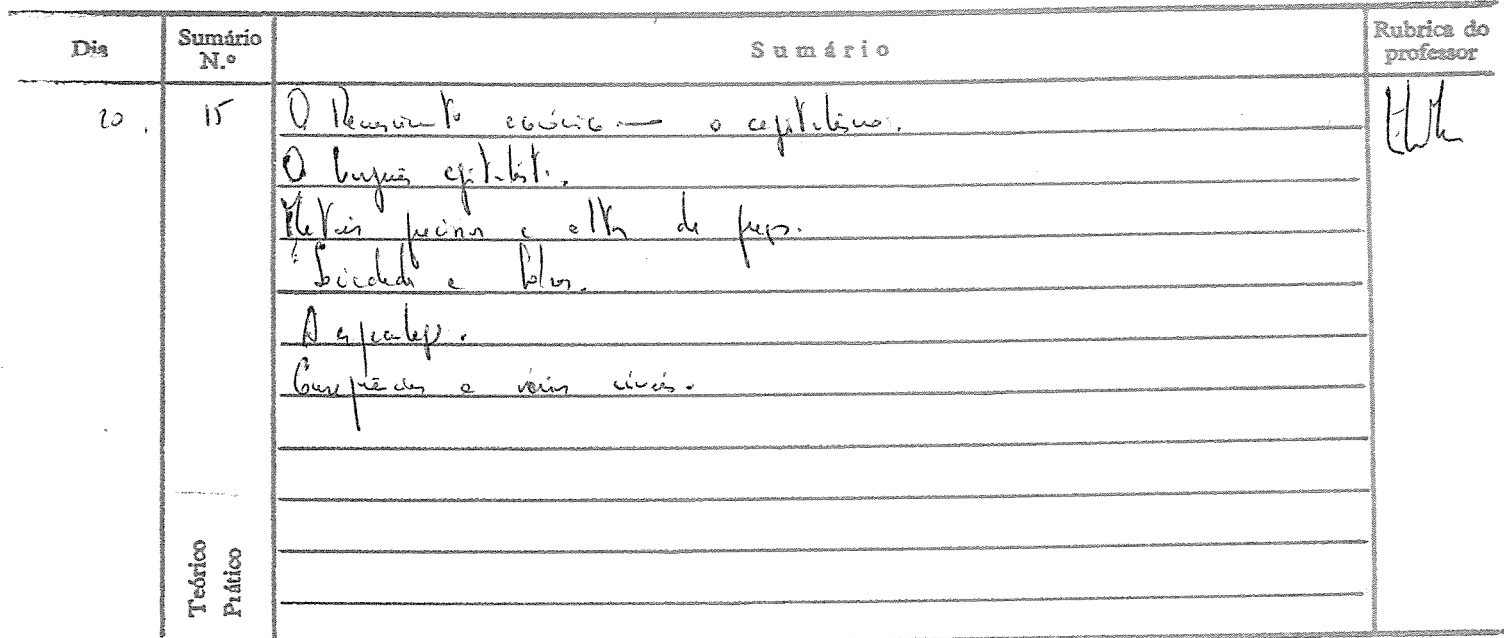 Dia Sumário N.º Sumário Rubrica do professor
20 15 O Renascimento económico — o capitalismo.
O burguês capitalista.
Metais preciosos e alta de preços.
Sociedade e
A especulação.
Consequências e
Teórico
Prático